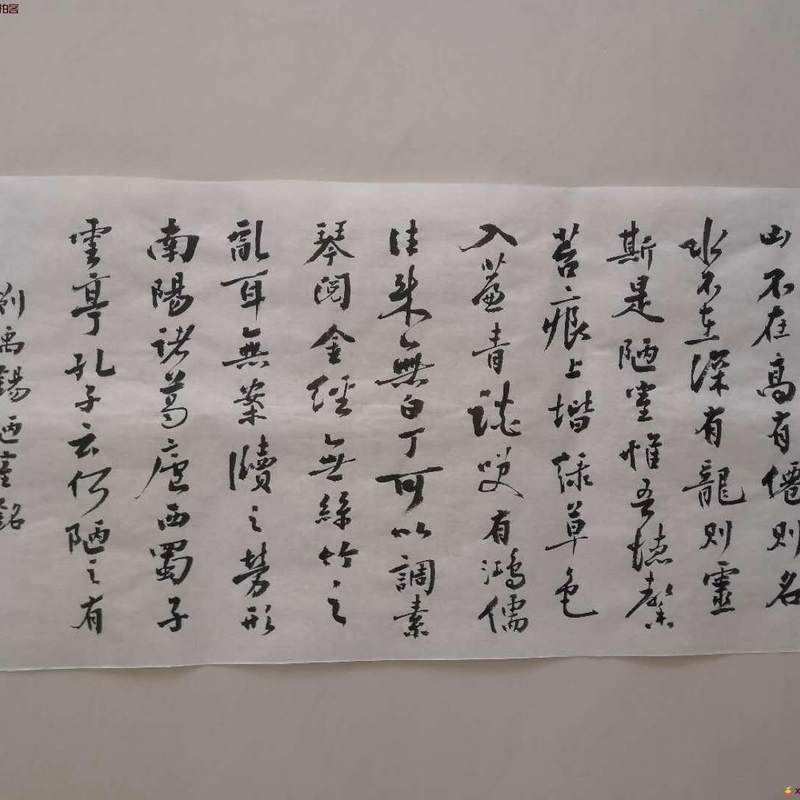 山不在高有僊則名
水不在深有龍則靈
斯是陋室惟吾德馨
苔痕上堦綠草色
入簾青談咲有鴻儒
往來無白丁可以調素
琴閱金經無絲竹之
亂耳無案牘之勞形
南陽諸葛廬西蜀子
雲亭孔子云何陋之有
劉禹錫陋室銘
拍客